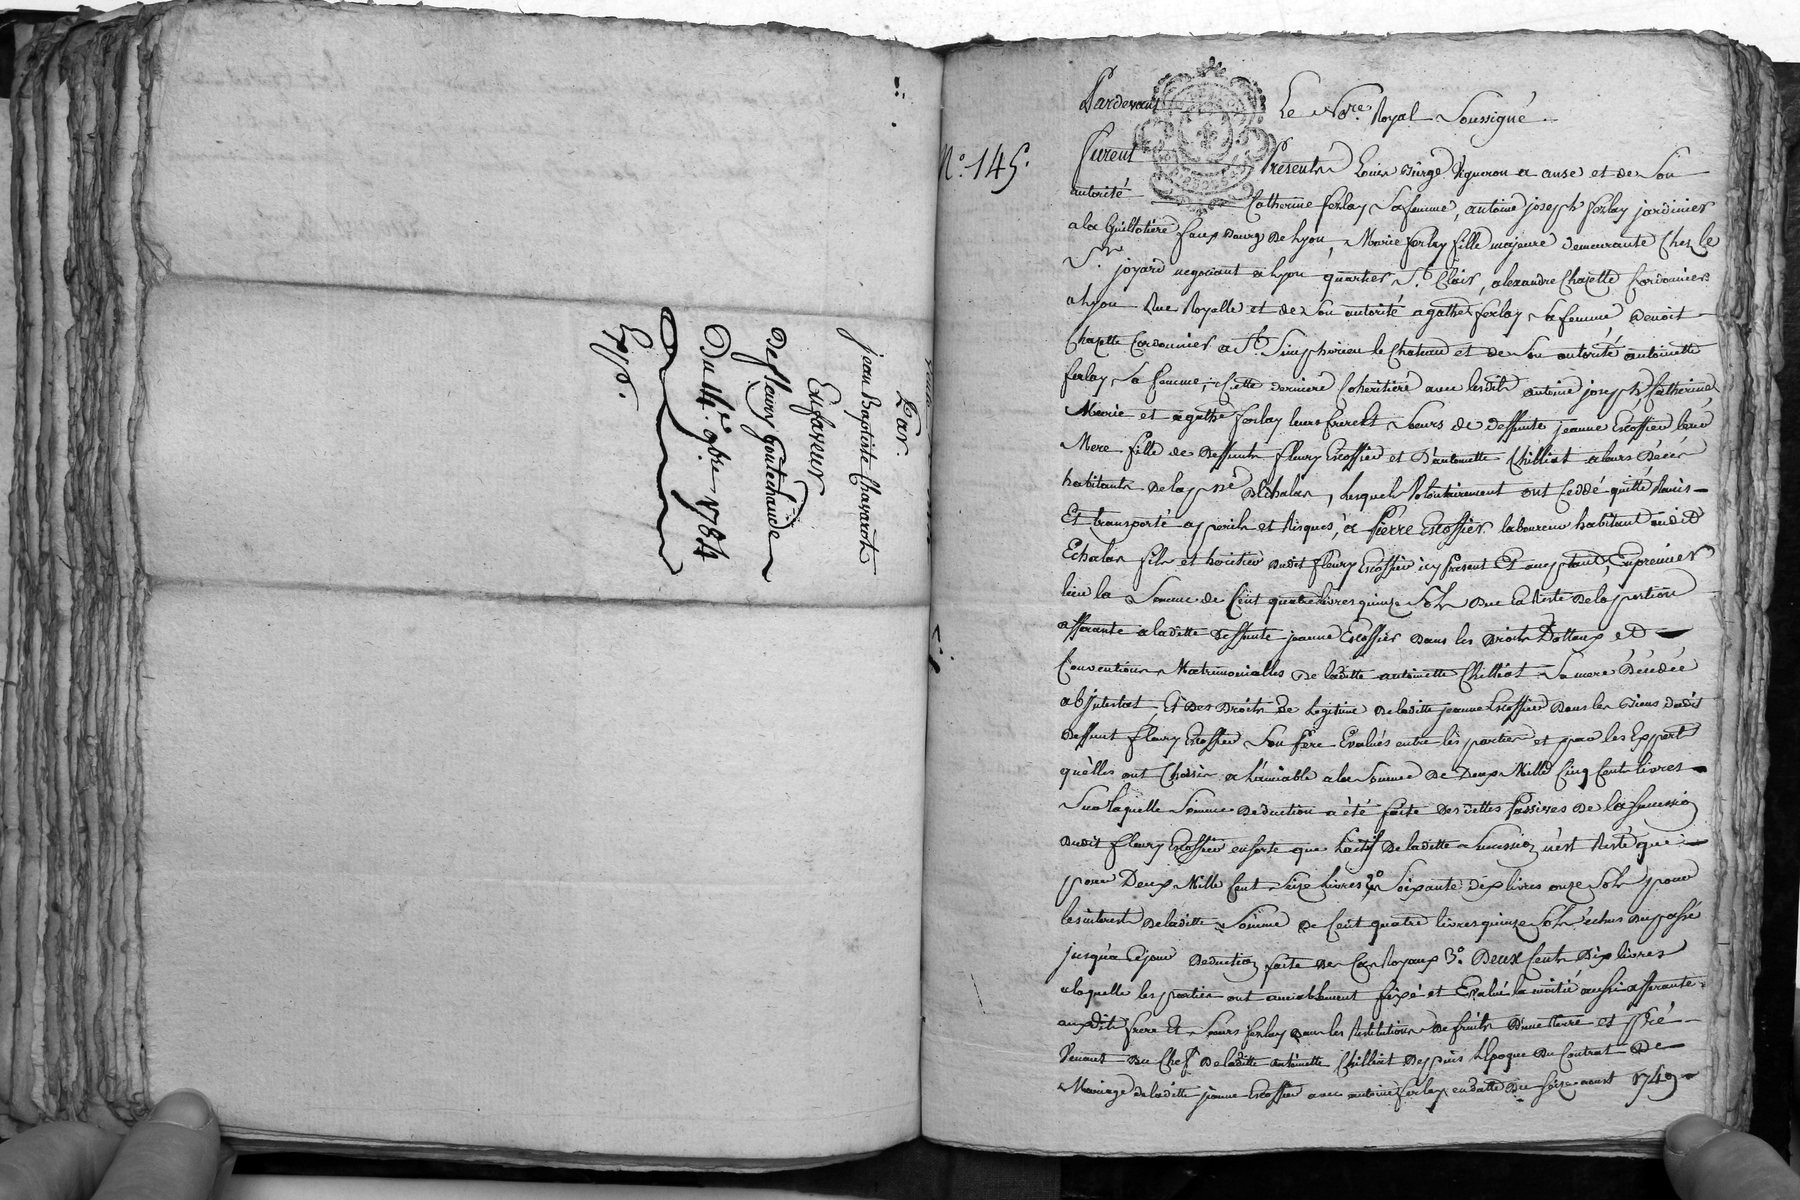 Par.
jean Baptiste Chavarot
En faveur
de fleury goutechaude
Du 14e. 9bre 1784
Expé.
N.° 145.
Pardevant Le No.re Royal Soussigné
Furent Presents Louis Burge Vigneron a anse et de Son
autorité Catherine ferlay Sa femme, antoine joseph ferlay jardinier
a la Guillotiere faux bourg de Lyon, Marie ferlay fille majeure demeurante Chez le
Sr. joyard negotiant a Lyon quartier St. Clair, alexandre Chazette Cordonnier
a Lyon Rue Royalle et de Son autorité agathe ferlay Sa femme Benoit
Chazette Cordonnier a St. Simphorien le Chateau et de Son autorité antoinette
ferlay Sa femme, Cette derniere Coheritiere avec lesdits antoine joseph Catherine,
Marie et agathe ferlay leurs frere et Soeurs de deffunte jeanne Escoffier leur
Mere fille de Deffunts fleury Escoffier et D'antoinette Chilliat a leurs Décès
habitants de la psse D'Echalas, Lesquels Volontairement ont Ceddé quitté Remis
Et transporté a perils et Risques, a Pierre Escoffier laboureur habitant audit
Echalas fils et heritier dudit fleury Escoffier icy present Et acceptant, En premier
lieu la Somme de Cent quatre livres quinze Sols Due En Reste De la portion
afferante a laditte deffunte jeanne Escoffier Dans les Droits Dottaux et
Conventions Matrimonialles de laditte antoinette Chilliat Sa mere Décédée
ab jntestat, Et Des Droits De Legitime de laditte jeanne Escoffier Dans les Biens dudit
deffunt fleury Escoffier Son Pere Evalués entre les parties et par les Expert
quelles ont Choisis a L'amiable a la Somme De Deux Mille Cinq Cents livres
Sur laquelle Somme deduction a été faite des dettes Passives de la Succession
dudit fleury Escoffier en Sorte que L'actif De laditte Succession n'est Resté que
pour Deux Mille Cent Seize Livres 2.° Soixante dix livres onze Sols pour
les interest de laditte Somme de Cent quatre livres quinze Sols échus du passé
jusqu'a Ce jour Deduction faite des Cas Royaux 3.° Deux Cents Dix livres
a laquelle les parties ont amiablement fixé et Evalué la moitié aussi afferante
auxdits frere Et Soeurs ferlay dans les Restitutions de fruits D'une terre et Pré
Venant du Chef De laditte antoinette Chilliat Depuis L'Epoque du Contrat de
Mariage de laditte jeanne Escoffier avec antoine ferlay en datte du Seize aoust 1749